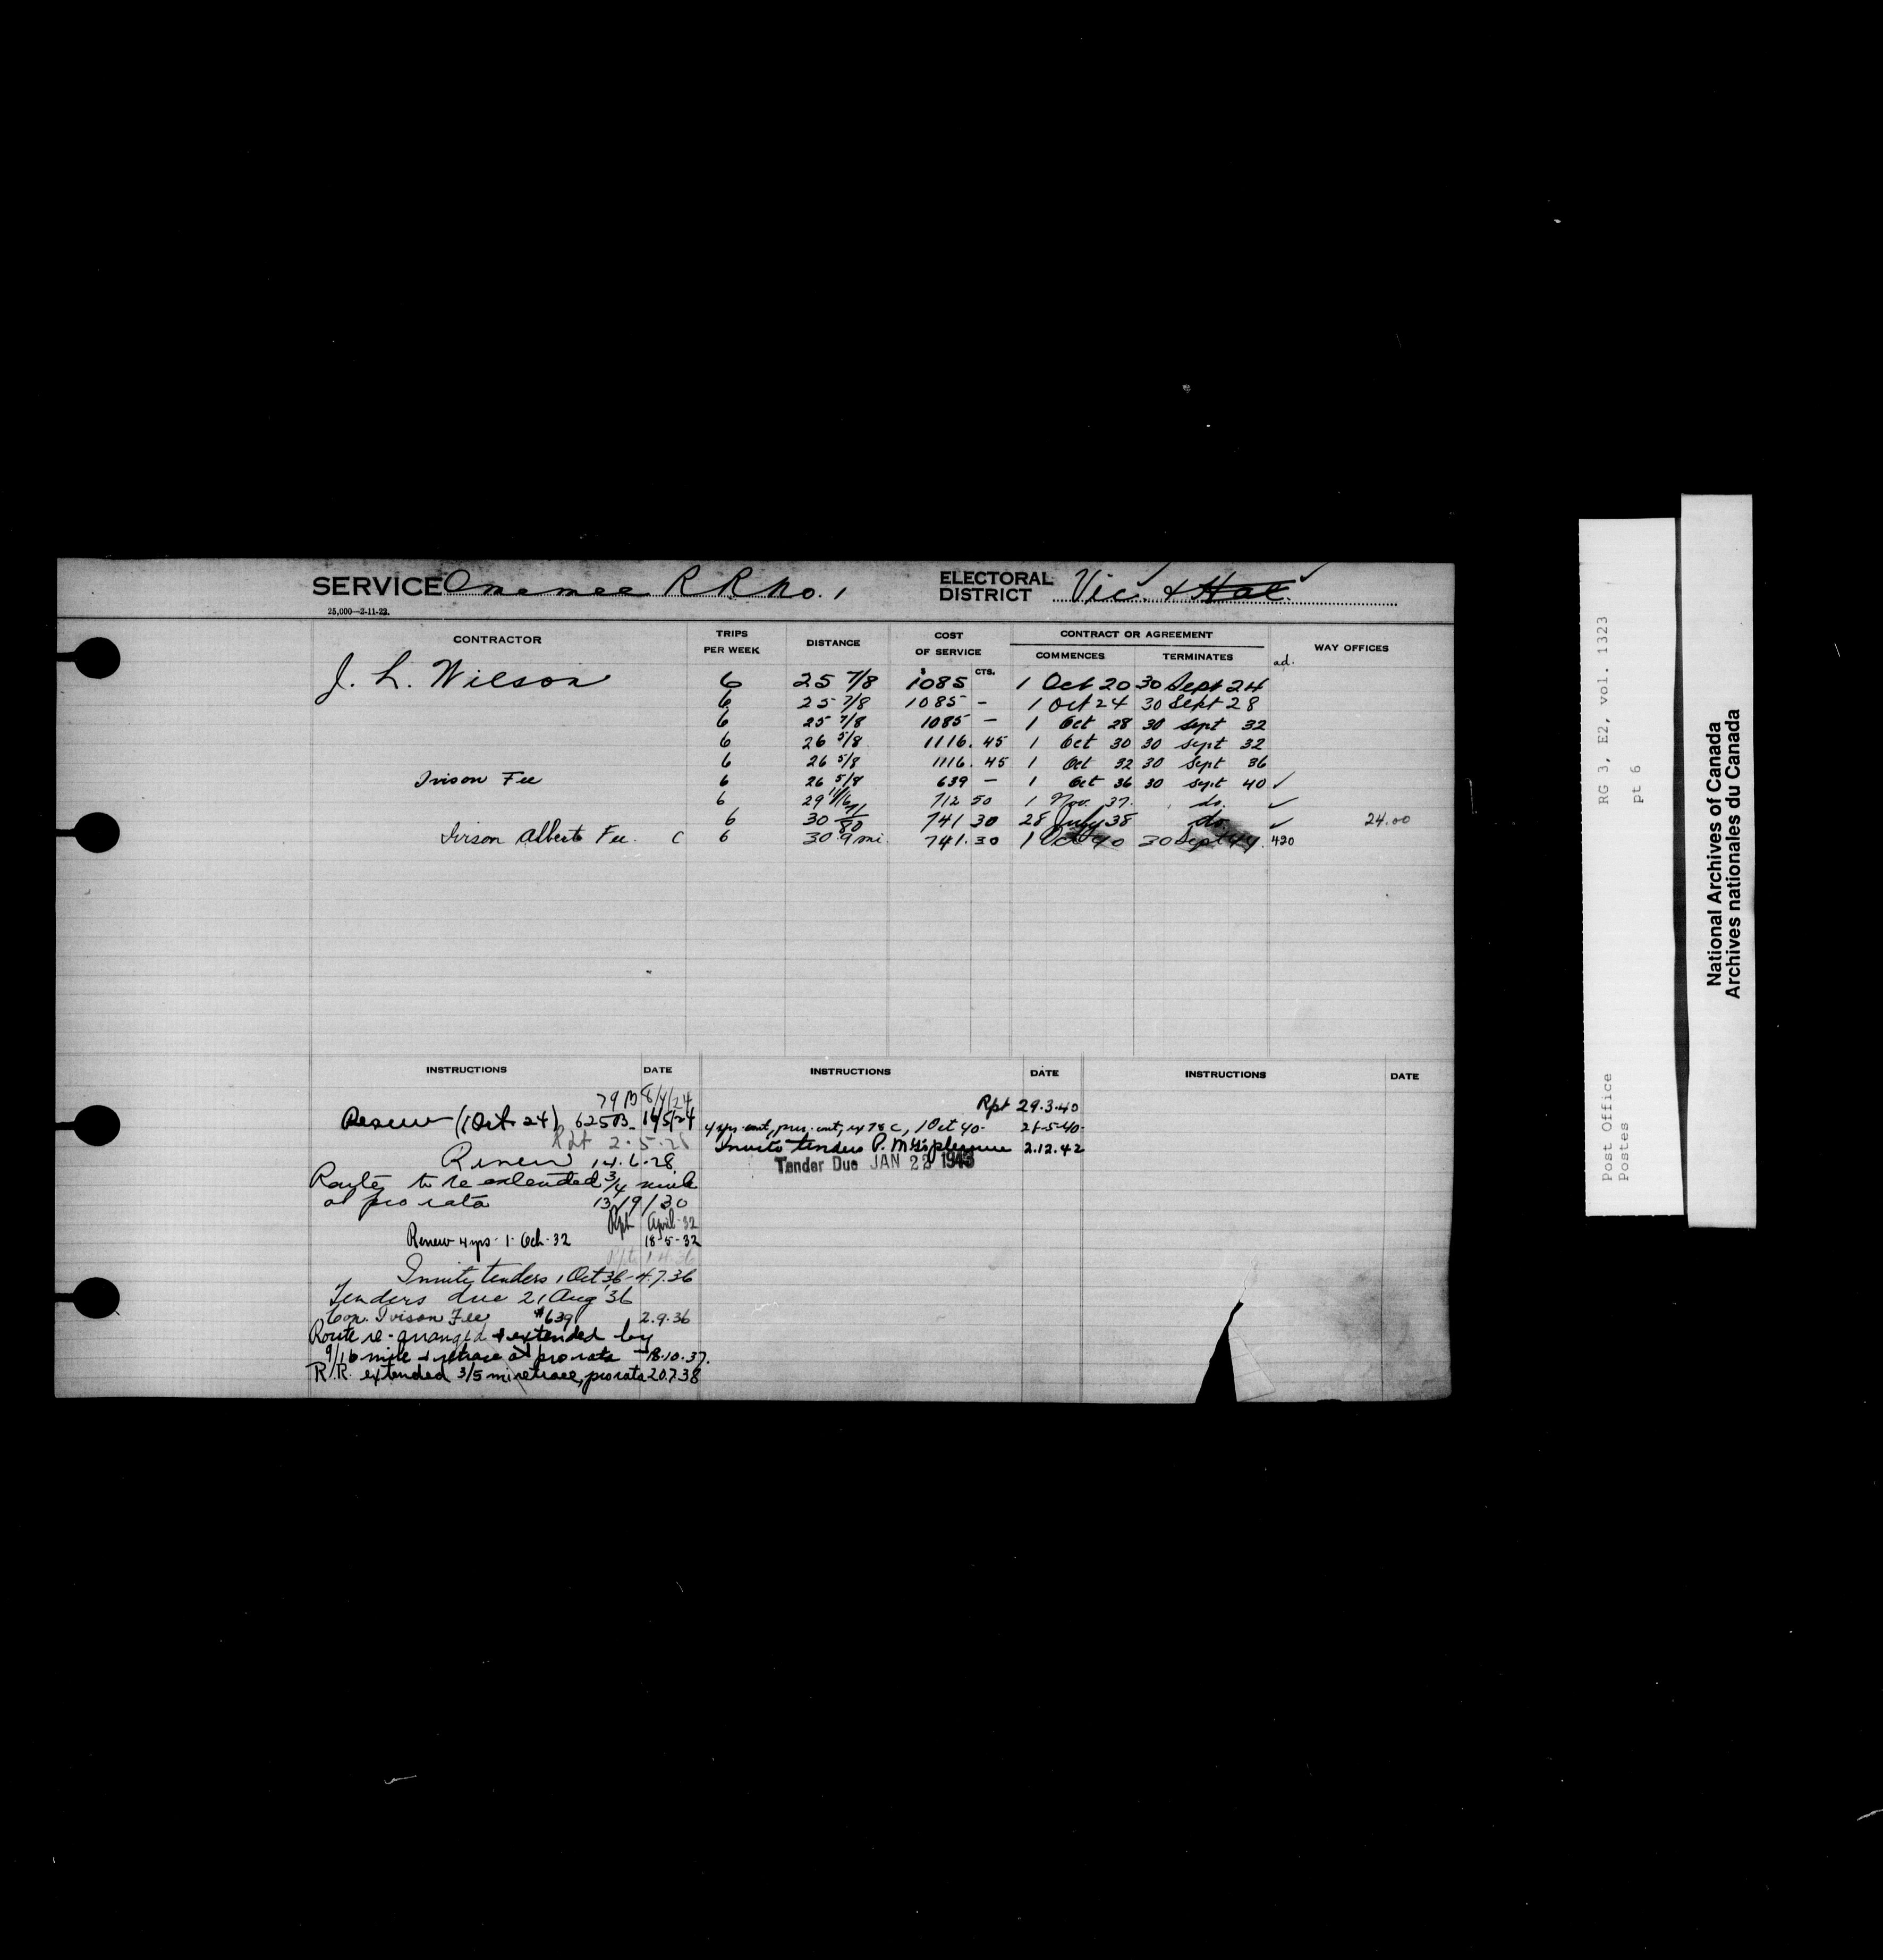 SERVICE Omemee R R No. 1 ELECTORAL DISTRICT Vic. & Hal.
25,000—2-11-22.
CONTRACTOR TRIPS PER WEEK DISTANCE COST OF SERVICE CONTRACT OR AGREEMENT COMMENCES TERMINATES WAY OFFICES
$ CTS. ad.
J. L. Wilson 6 25 7/8 1085 1 Oct 20 30 Sept 24
6 25 7/8 1085 - 1 Oct 24 30 Sept 28
6 25 7/8 1085 - 1 Oct 28 30 Sept 32
6 26 5/8 1116.45 1 Oct 30 30 Sept 32
6 26 5/8 1116.45 1 Oct 32 30 Sept 36
Ivison Fee 6 26 5/8 639 - 1 Oct 36 30 Sept 40 ✓
6 29 11/16 712 50 1 Nov. 37. do. ✓
6 30 71/80 741 30 28 July 38 do. ✓ 24.00
Ivison Albert Fee. C 6 30.9 mi. 741.30 1 Oct 40 30 Sept 44. 420
INSTRUCTIONS DATE INSTRUCTIONS DATE INSTRUCTIONS DATE
79 B 8/4/24
Renew (1 Oct. 24) 625B 16/5/24
Rpt 2.5.28
Renew 14.6.28
Route to be extended 3/4 mile
at pro rata 13/9/30
Rpt April-32
Renew 4 yrs. 1. Oct. 32 18-5-32
Rpt 1.4.36
Invite tenders 1 Oct '36 - 4.7.36
Tenders due 21 Aug '36
Con. Ivison Fee $639 2.9.36
Route re-arranged & extended by
9/16 mile & retrace at pro rata - 18.10.37.
R.R. extended 3/5 mi retrace, pro rata 20.7.38
Rpt 29.3.40
4 yrs. cont, pres. cont, 1 Oct 40. 21-5-40.
Invite tenders P. M. G's pleasure 2.12.42
Tender Due JAN 22 1943
RG 3, E2, vol. 1323
pt 6
Post Office
Postes
National Archives of Canada
Archives nationales du Canada